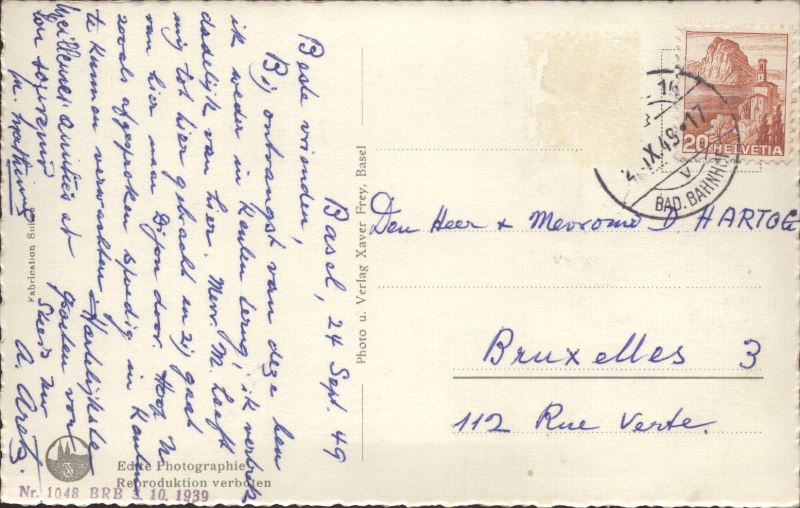 Basel, 24 Sept. 49
Beste vrienden,
Bij ontvangst van deze ben
ik weder in Keulen terug; ik vertrek
dadelijk van hier. Mevr. M. heeft
mij tot hier gebracht en zij gaat
van hier naar Dijon door. Hoop U
zooals afgesproken spoedig in Keulen
te kunnen verwachten. Hartelijkste
groeten van
Steeds Uw
A.
Meilleures amitiés et
bon souvenir
M.
Fabrication Suisse
Photo u. Verlag Xaver Frey, Basel
Echte Photographie
Reproduktion verboten
Nr. 1048 BRB 3. 10. 1939
20 HELVETIA
IX.49-17
BAD. BAHNHOF
Den Heer & Mevrouw D HARTOG
Bruxelles 3
112 Rue Verte.